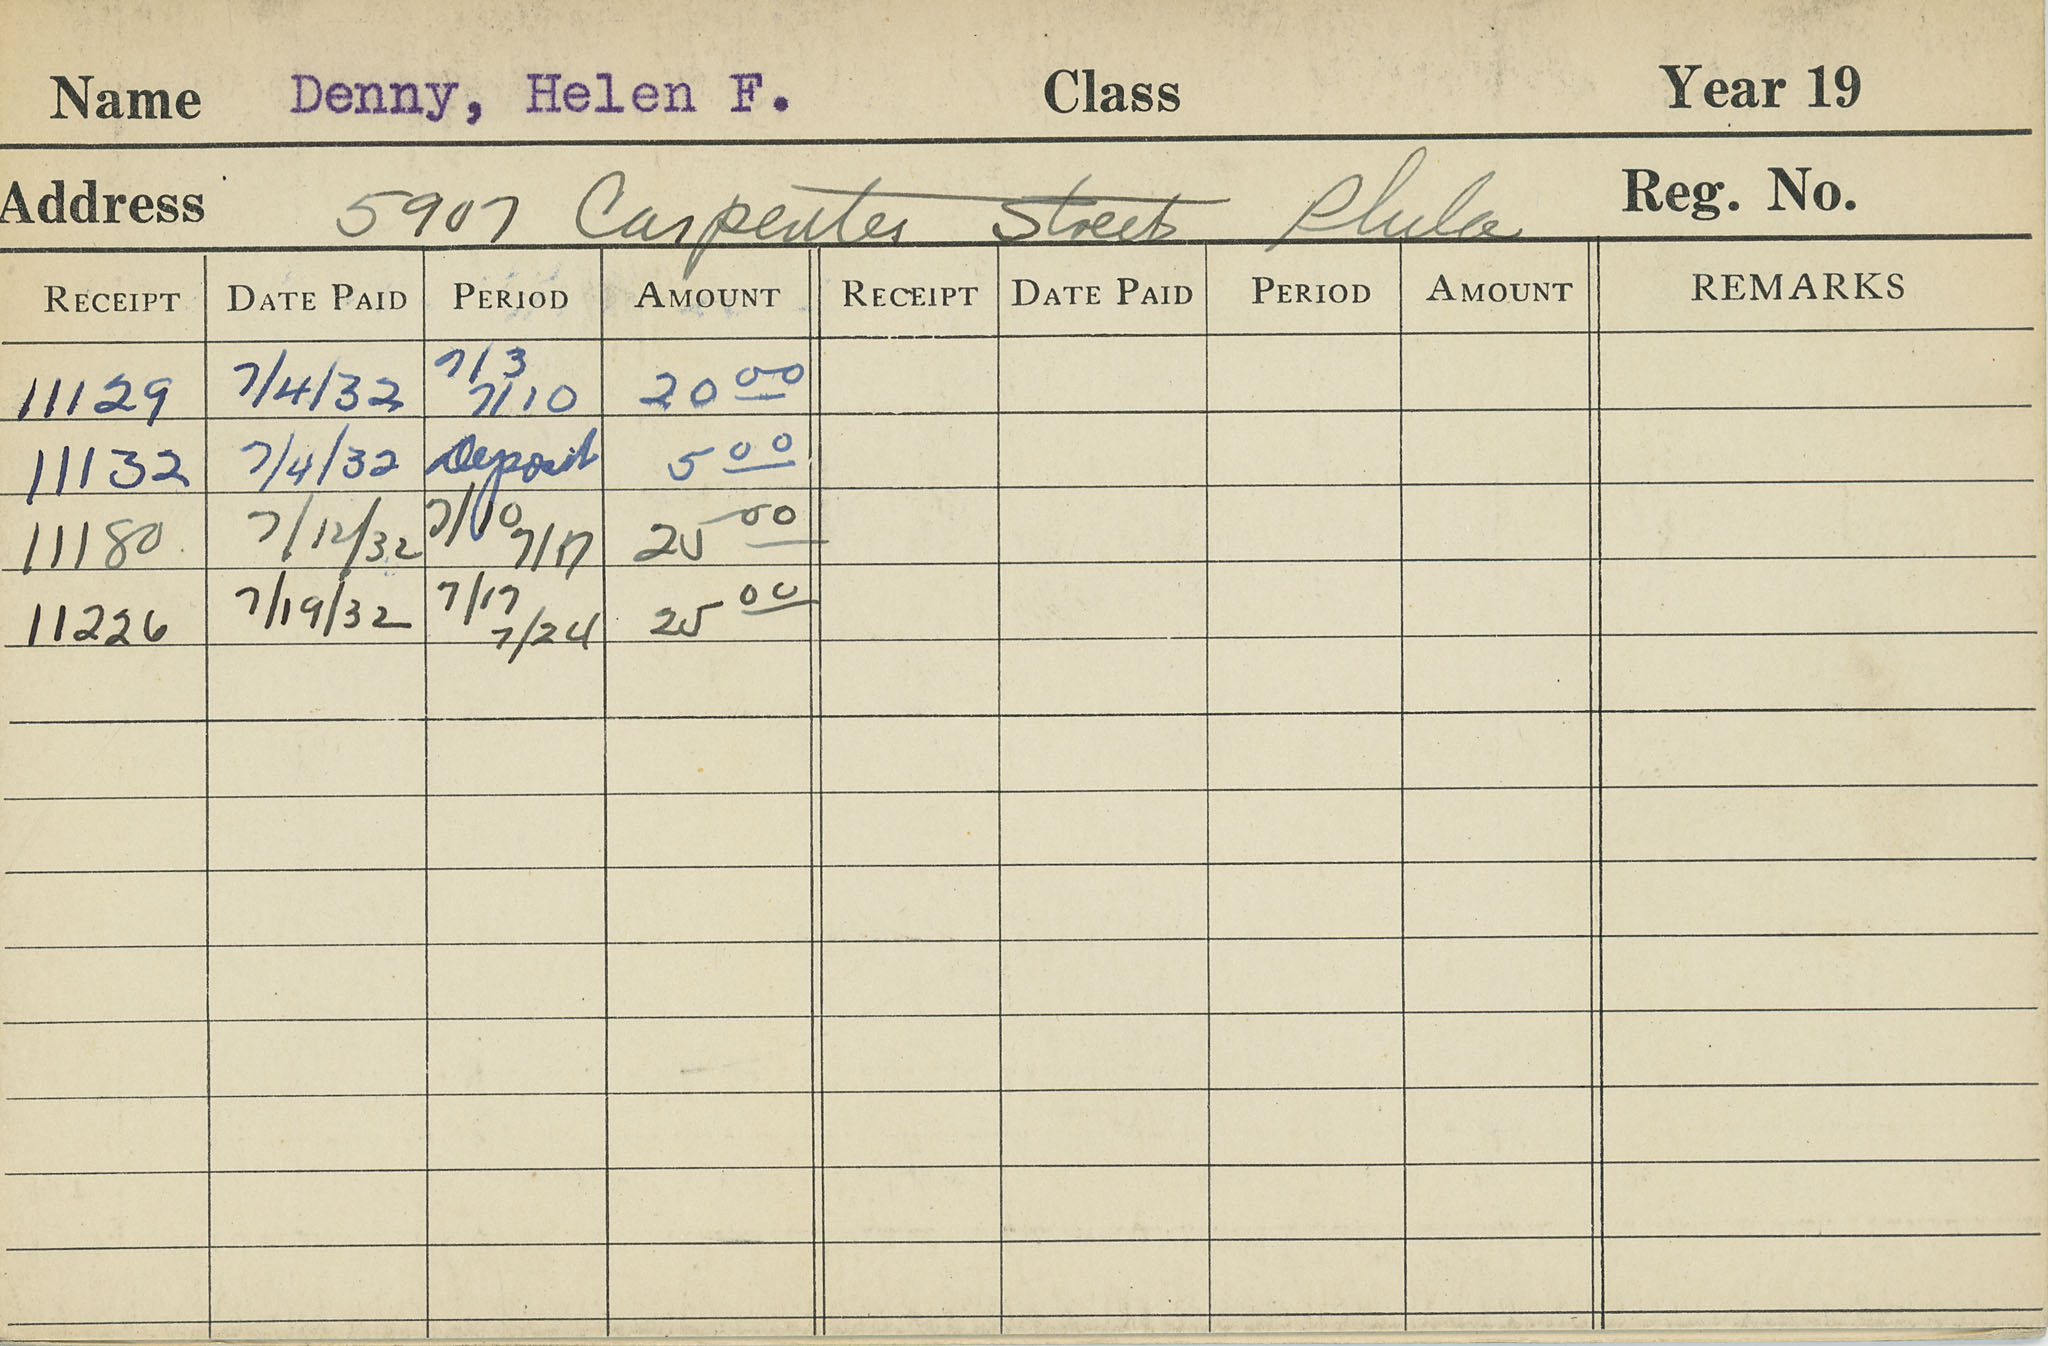 Name Denny, Helen F. Class Year 19
Address 5907 Carpenter Street Phila Reg. No.
RECEIPT DATE PAID PERIOD AMOUNT RECEIPT DATE PAID PERIOD AMOUNT REMARKS
11129 7/4/32 7/3 7/10 20 00
11132 7/4/32 Deposit 5 00
11180 7/12/32 7/10 7/17 25 00
11226 7/19/32 7/17 7/24 25 00